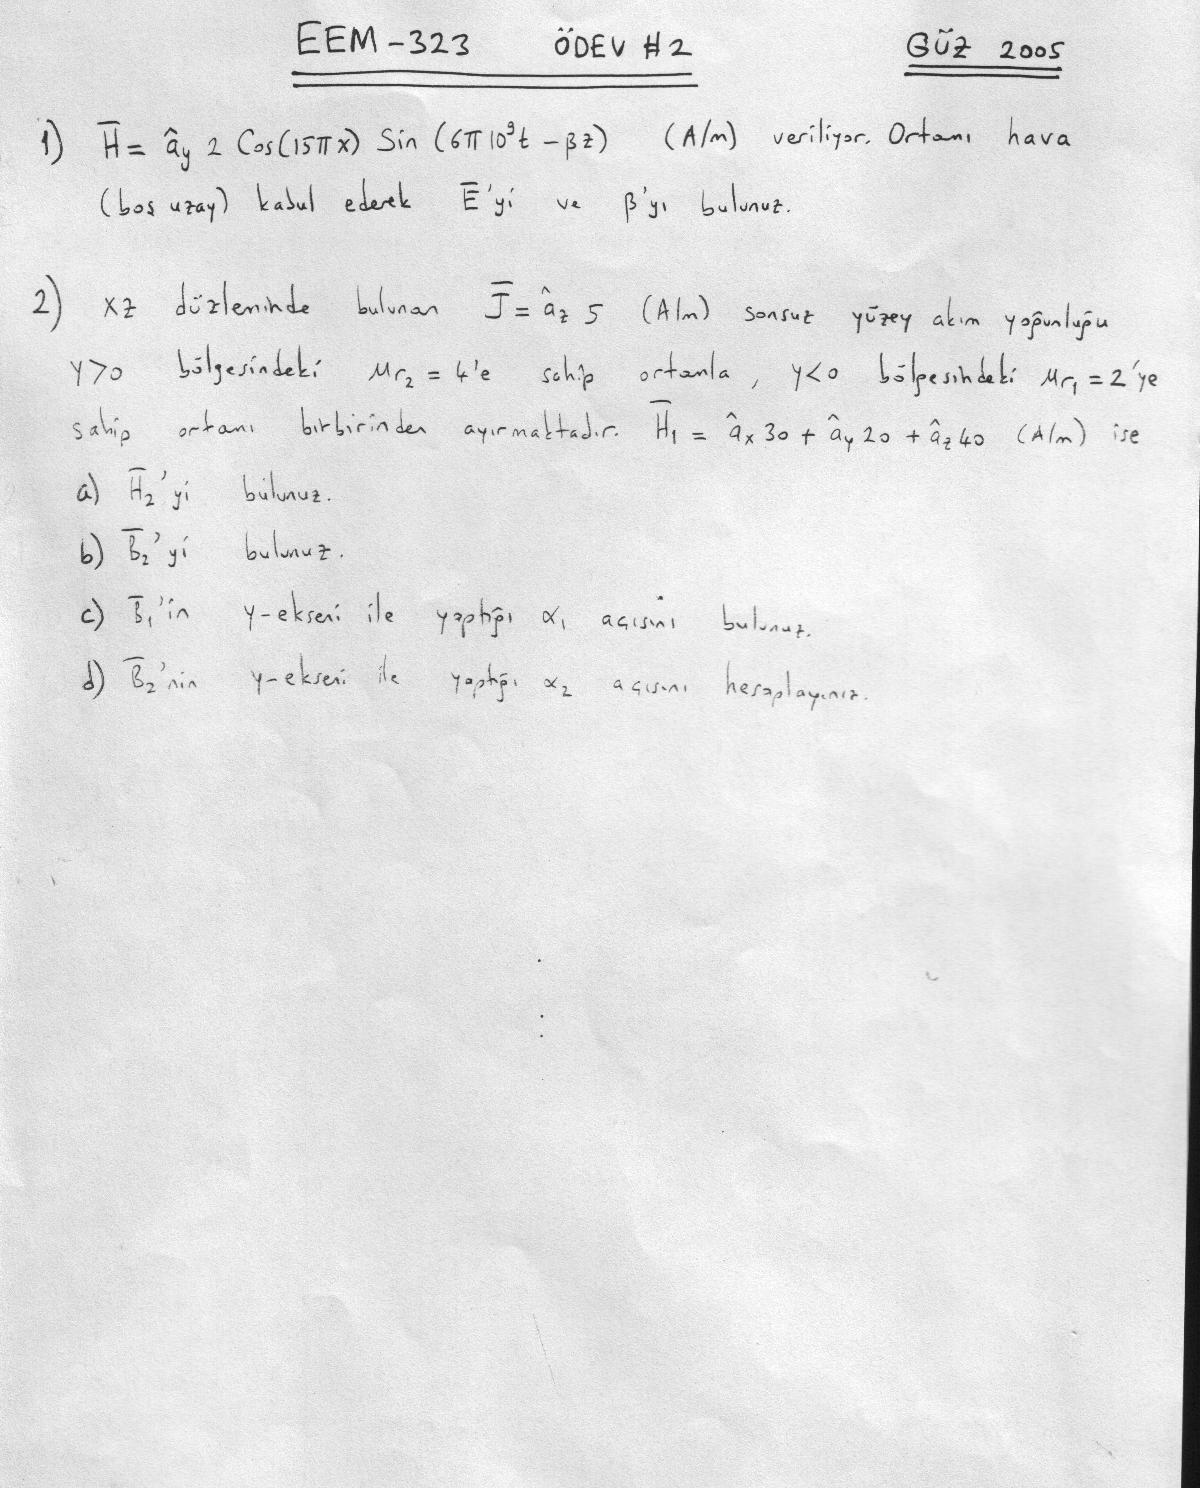 EEM-323 ÖDEV #2 GÜZ 2005
1) H̅ = â_y 2 Cos(15πx) Sin(6π10⁹t - βz) (A/m) veriliyor. Ortamı hava
(boş uzay) kabul ederek E̅'yi ve β'yı bulunuz.
2) xz düzleminde bulunan J̅ = â_z 5 (A/m) sonsuz yüzey akım yoğunluğu
y>0 bölgesindeki μr₂ = 4'e sahip ortamla, y<0 bölgesindeki μr₁ = 2'ye
sahip ortamı birbirinden ayırmaktadır. H̅₁ = â_x 30 + â_y 20 + â_z 40 (A/m) ise
a) H̅₂'yi bulunuz.
b) B̅₂'yi bulunuz.
c) B̅₁'in y-ekseni ile yaptığı α₁ açısını bulunuz.
d) B̅₂'nin y-ekseni ile yaptığı α₂ açısını hesaplayınız.